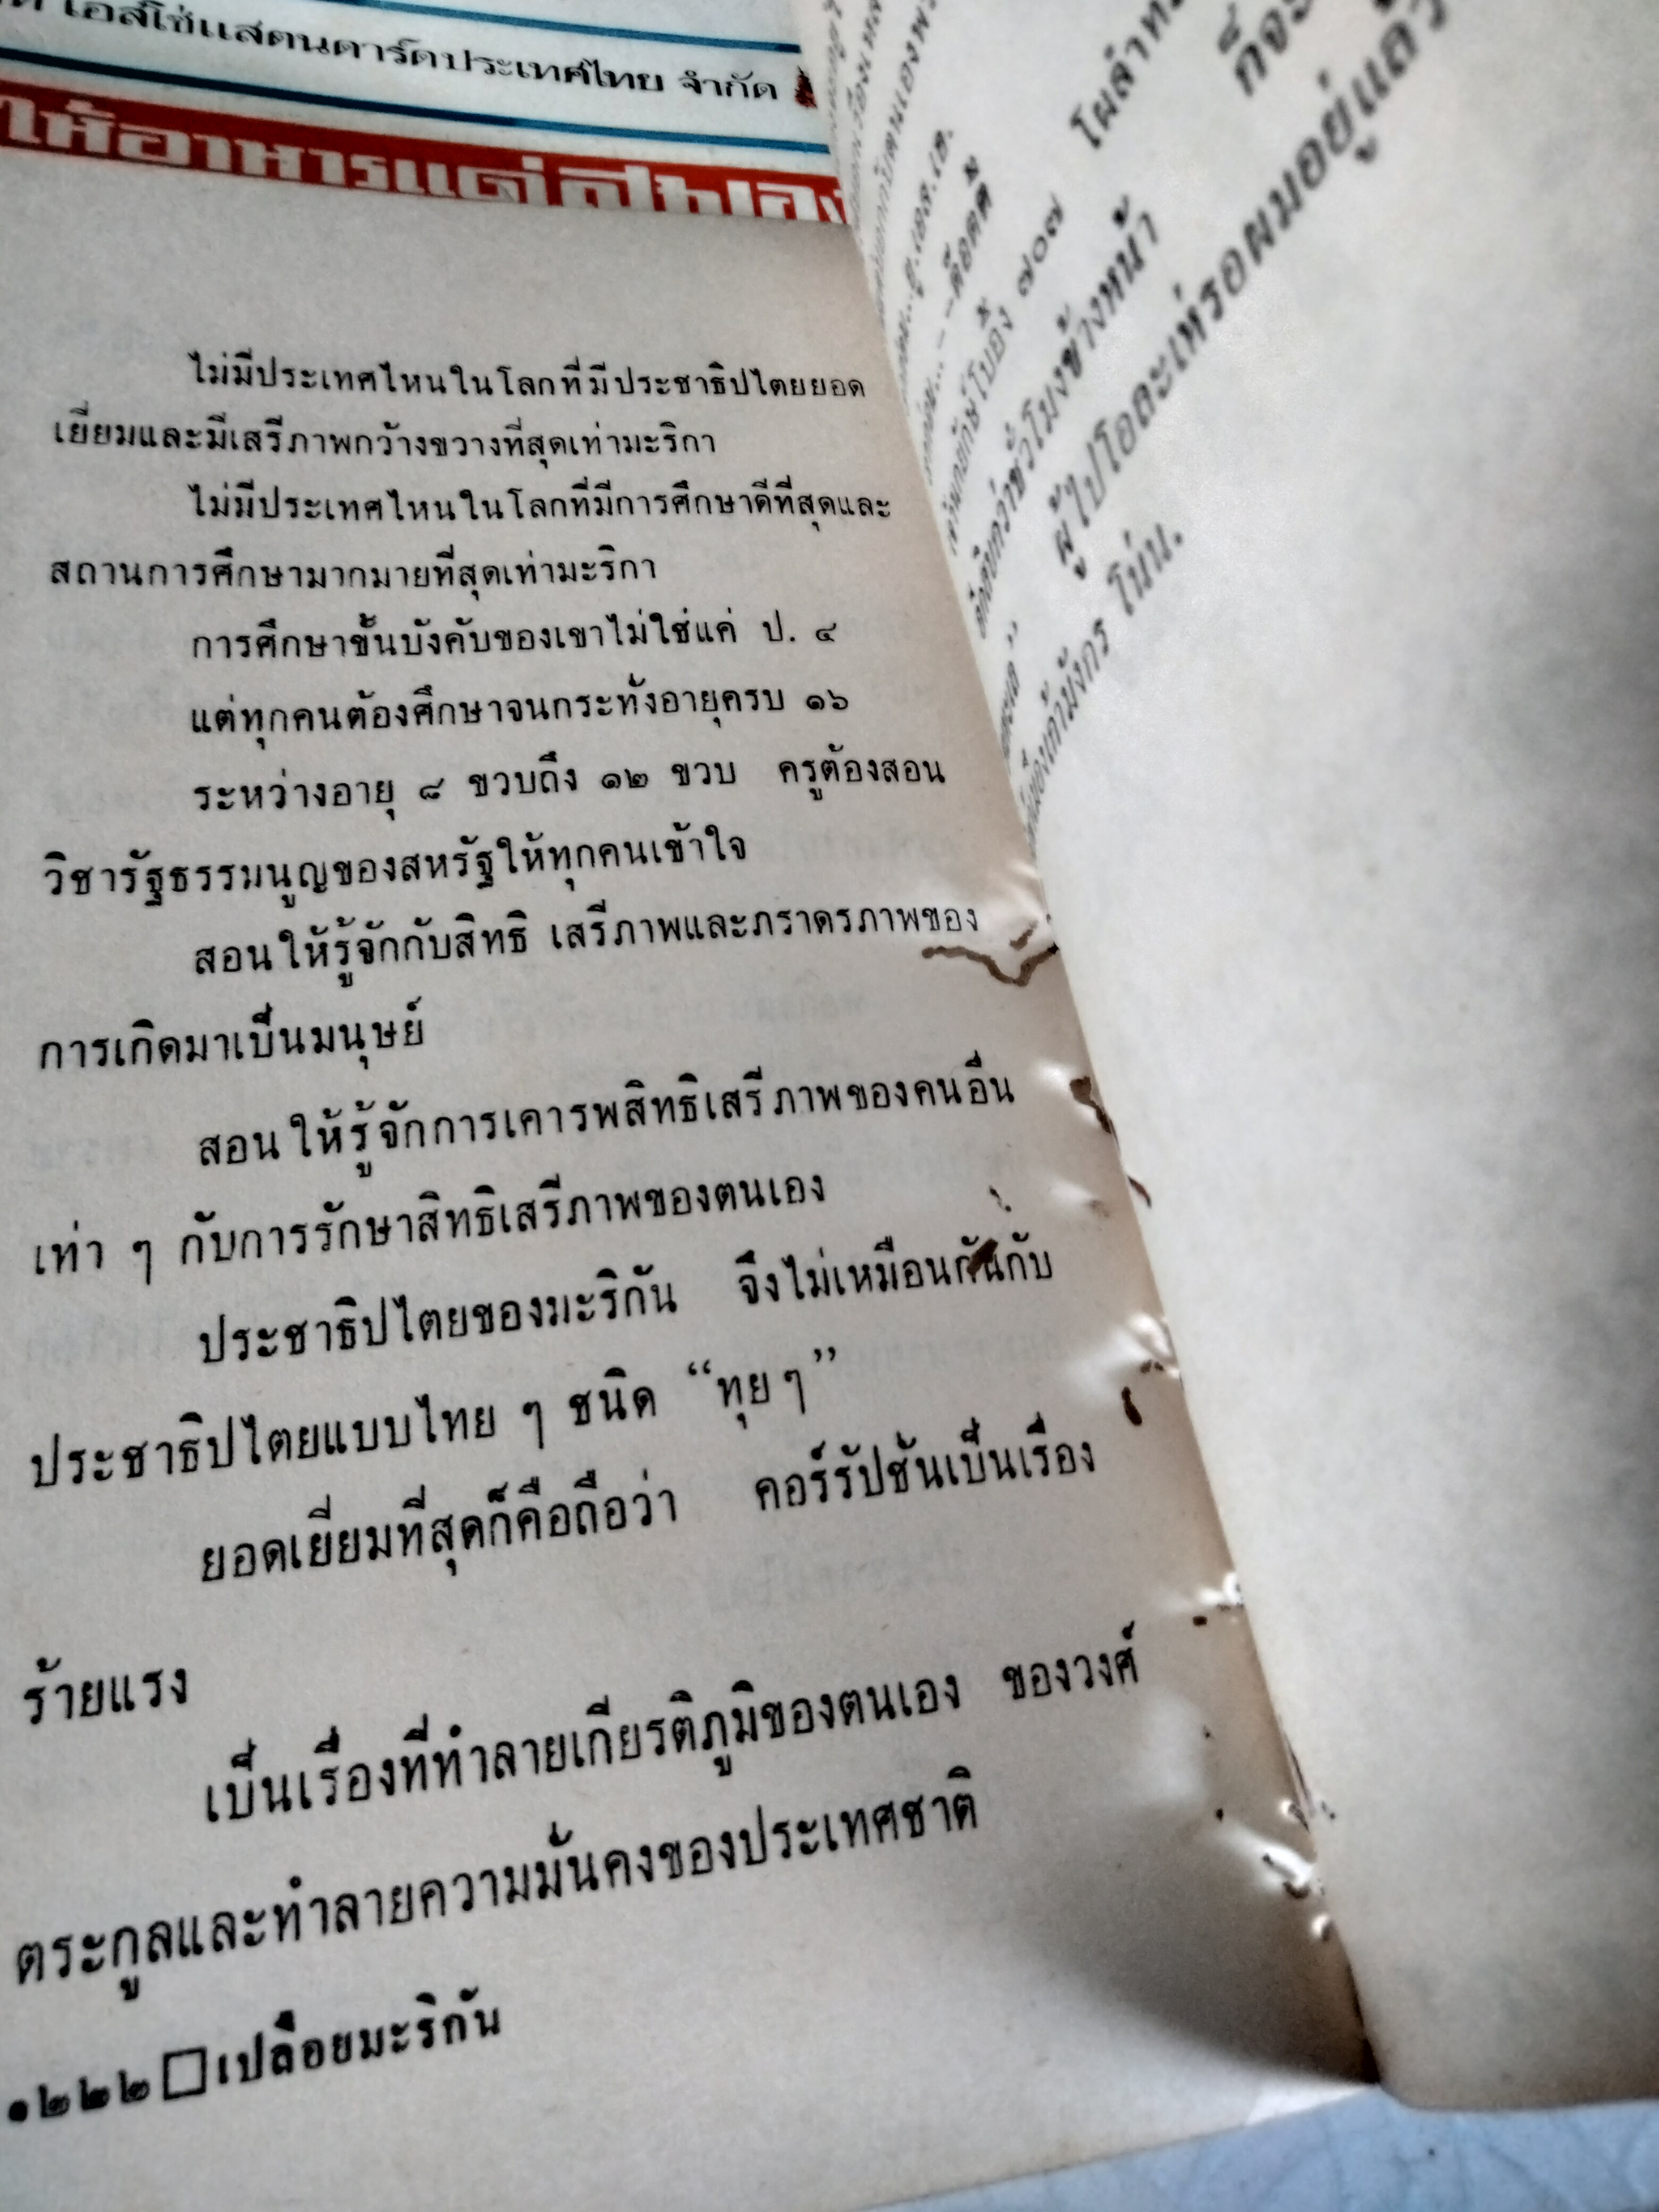 เอสโซ่แสตนดาร์ดประเทศไทย จำกัด
ให้อาหารแด่
ไม่มีประเทศไหนในโลกที่มีประชาธิปไตยยอด
เยี่ยมและมีเสรีภาพกว้างขวางที่สุดเท่ามะริกา
ไม่มีประเทศไหนในโลกที่มีการศึกษาดีที่สุดและ
สถานการศึกษามากมายที่สุดเท่ามะริกา
การศึกษาขั้นบังคับของเขาไม่ใช่แค่ ป. ๔
แต่ทุกคนต้องศึกษาจนกระทั่งอายุครบ ๑๖
ระหว่างอายุ ๘ ขวบถึง ๑๒ ขวบ ครูต้องสอน
วิชารัฐธรรมนูญของสหรัฐให้ทุกคนเข้าใจ
สอนให้รู้จักกับสิทธิ เสรีภาพและภราดรภาพของ
การเกิดมาเป็นมนุษย์
สอนให้รู้จักการเคารพสิทธิเสรีภาพของคนอื่น
เท่า ๆ กับการรักษาสิทธิเสรีภาพของตนเอง
ประชาธิปไตยของมะริกัน จึงไม่เหมือนกันกับ
ประชาธิปไตยแบบไทย ๆ ชนิด “ทุย ๆ”
ยอดเยี่ยมที่สุดก็คือถือว่า คอร์รัปชั่นเป็นเรื่อง
ร้ายแรง
เป็นเรื่องที่ทำลายเกียรติภูมิของตนเอง ของวงศ์
ตระกูลและทำลายความมั่นคงของประเทศชาติ
๑๒๒๒ □ เปลือยมะริกัน
โผล่
ก็จะ
๗๐๗
ชั่วโมงข้างหน้า
ผู้ไปโอละเห่รอผมอยู่แล้ว
โน่น.